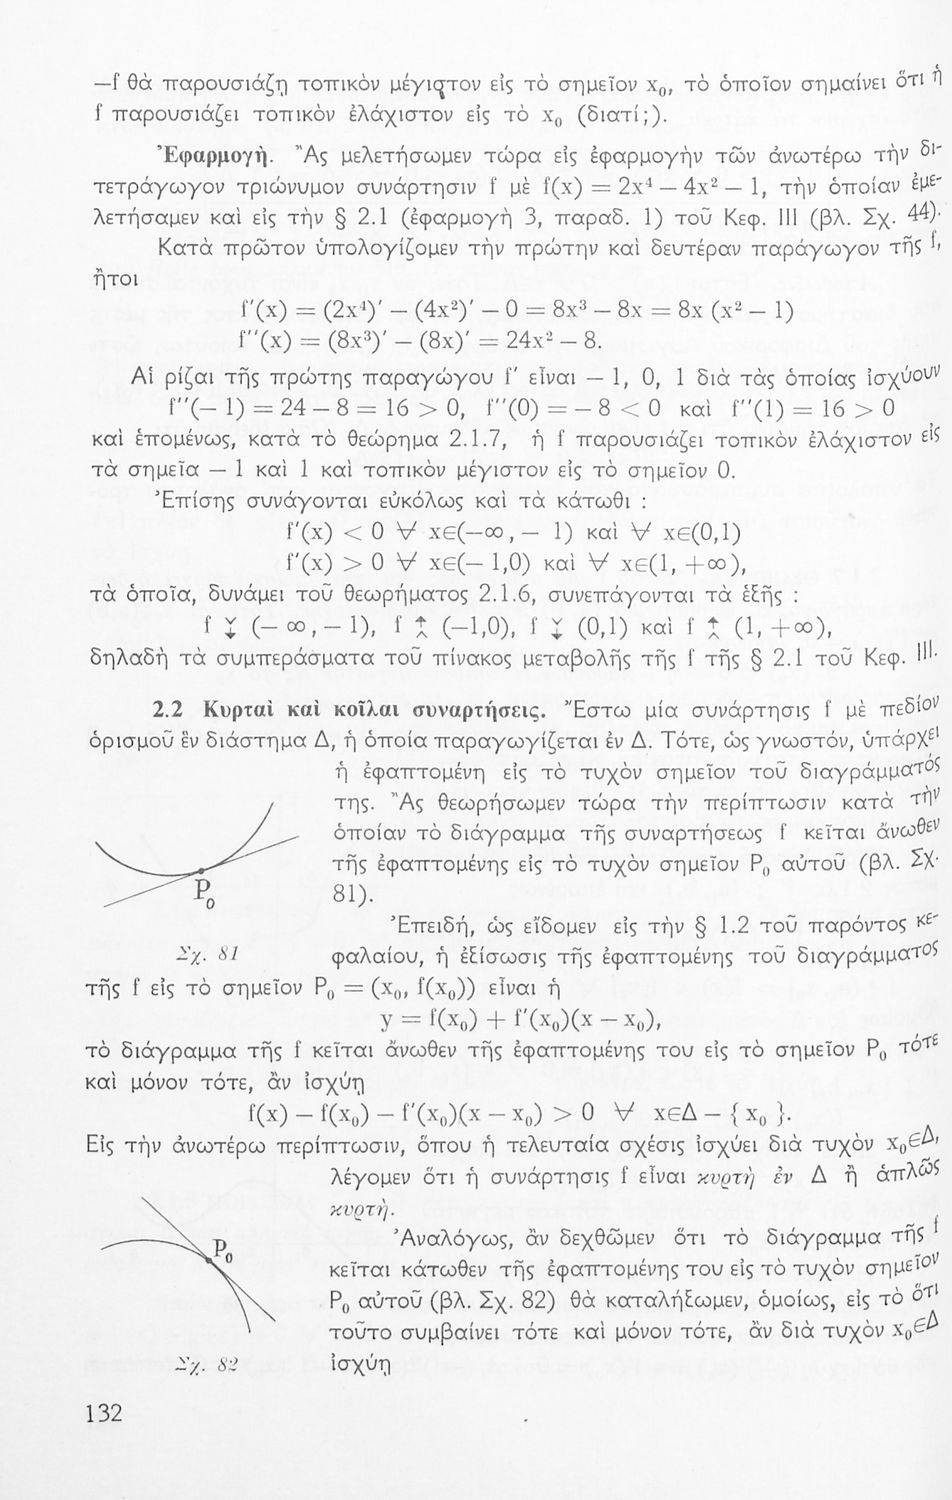 —f θὰ παρουσιάζῃ τοπικὸν μέγιστον εἰς τὸ σημεῖον x₀, τὸ ὁποῖον σημαίνει ὅτι ἡ
f παρουσιάζει τοπικὸν ἐλάχιστον εἰς τὸ x₀ (διατί;).
Ἐφαρμογὴ. Ἂς μελετήσωμεν τώρα εἰς ἐφαρμογὴν τῶν ἀνωτέρω τὴν δι-
τετράγωγον τριώνυμον συνάρτησιν f μὲ f(x) = 2x⁴ — 4x² — 1, τὴν ὁποίαν ἐμε-
λετήσαμεν καὶ εἰς τὴν § 2.1 (ἐφαρμογὴ 3, παραδ. 1) τοῦ Κεφ. III (βλ. Σχ. 44).
Κατὰ πρῶτον ὑπολογίζομεν τὴν πρώτην καὶ δευτέραν παράγωγον τῆς f,
ἤτοι
f'(x) = (2x⁴)' — (4x²)' — 0 = 8x³ — 8x = 8x (x² — 1)
f''(x) = (8x³)' — (8x)' = 24x² — 8.
Αἱ ρίζαι τῆς πρώτης παραγώγου f' εἶναι — 1, 0, 1 διὰ τὰς ὁποίας ἰσχύουν
f''(— 1) = 24 — 8 = 16 > 0, f''(0) = — 8 < 0 καὶ f''(1) = 16 > 0
καὶ ἑπομένως, κατὰ τὸ θεώρημα 2.1.7, ἡ f παρουσιάζει τοπικὸν ἐλάχιστον εἰς
τὰ σημεῖα — 1 καὶ 1 καὶ τοπικὸν μέγιστον εἰς τὸ σημεῖον 0.
Ἐπίσης συνάγονται εὐκόλως καὶ τὰ κάτωθι :
f'(x) < 0 ∀ xϵ(—∞, — 1) καὶ ∀ xϵ(0,1)
f'(x) > 0 ∀ xϵ(— 1,0) καὶ ∀ xϵ(1, +∞),
τὰ ὁποῖα, δυνάμει τοῦ θεωρήματος 2.1.6, συνεπάγονται τὰ ἑξῆς :
f ↓ (— ∞, — 1), f ↑ (—1,0), f ↓ (0,1) καὶ f ↑ (1, +∞),
δηλαδὴ τὰ συμπεράσματα τοῦ πίνακος μεταβολῆς τῆς f τῆς § 2.1 τοῦ Κεφ. III.
2.2 Κυρταὶ καὶ κοῖλαι συναρτήσεις. Ἔστω μία συνάρτησις f μὲ πεδίον
ὁρισμοῦ ἓν διάστημα Δ, ἡ ὁποία παραγωγίζεται ἐν Δ. Τότε, ὡς γνωστόν, ὑπάρχει
ἡ ἐφαπτομένη εἰς τὸ τυχὸν σημεῖον τοῦ διαγράμματός
της. Ἂς θεωρήσωμεν τώρα τὴν περίπτωσιν κατὰ τὴν
ὁποίαν τὸ διάγραμμα τῆς συναρτήσεως f κεῖται ἄνωθεν
τῆς ἐφαπτομένης εἰς τὸ τυχὸν σημεῖον P₀ αὐτοῦ (βλ. Σχ.
81).
P₀
Σχ. 81
Ἐπειδή, ὡς εἴδομεν εἰς τὴν § 1.2 τοῦ παρόντος κε-
φαλαίου, ἡ ἐξίσωσις τῆς ἐφαπτομένης τοῦ διαγράμματος
τῆς f εἰς τὸ σημεῖον P₀ = (x₀, f(x₀)) εἶναι ἡ
y = f(x₀) + f'(x₀)(x — x₀),
τὸ διάγραμμα τῆς f κεῖται ἄνωθεν τῆς ἐφαπτομένης του εἰς τὸ σημεῖον P₀ τότε
καὶ μόνον τότε, ἂν ἰσχύῃ
f(x) — f(x₀) — f'(x₀)(x — x₀) > 0 ∀ xϵΔ — { x₀ }.
Εἰς τὴν ἀνωτέρω περίπτωσιν, ὅπου ἡ τελευταία σχέσις ἰσχύει διὰ τυχὸν x₀ϵΔ,
λέγομεν ὅτι ἡ συνάρτησις f εἶναι κυρτὴ ἐν Δ ἢ ἁπλῶς
κυρτὴ.
Ἀναλόγως, ἂν δεχθῶμεν ὅτι τὸ διάγραμμα τῆς f
κεῖται κάτωθεν τῆς ἐφαπτομένης του εἰς τὸ τυχὸν σημεῖον
P₀ αὐτοῦ (βλ. Σχ. 82) θὰ καταλήξωμεν, ὁμοίως, εἰς τὸ ὅτι
τοῦτο συμβαίνει τότε καὶ μόνον τότε, ἂν διὰ τυχὸν x₀ϵΔ
ἰσχύῃ
P₀
Σχ. 82
132